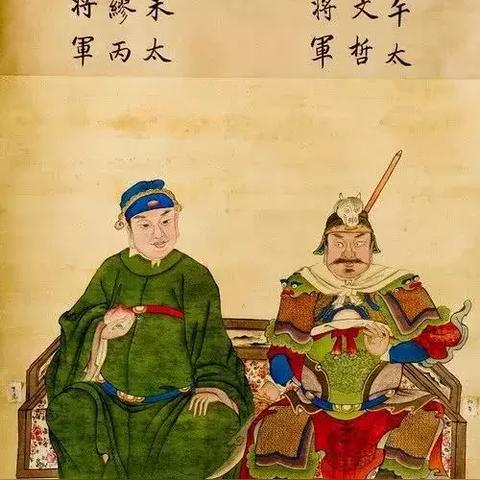 午太
文哲
將軍
未太
繆丙
將軍